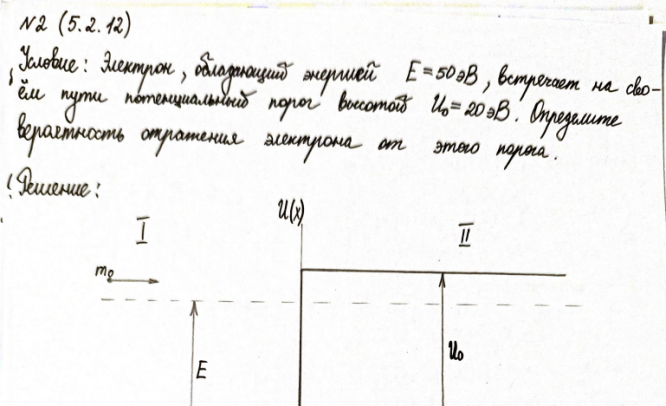 №2 (5.2.12)
Условие: Электрон, обладающий энергией E=50эВ, встречает на сво-
ём пути потенциальный порог высотой U₀=20эВ. Определите
вероятность отражения электрона от этого порога.
Решение:
U(x)
I
II
m₀
E
U₀